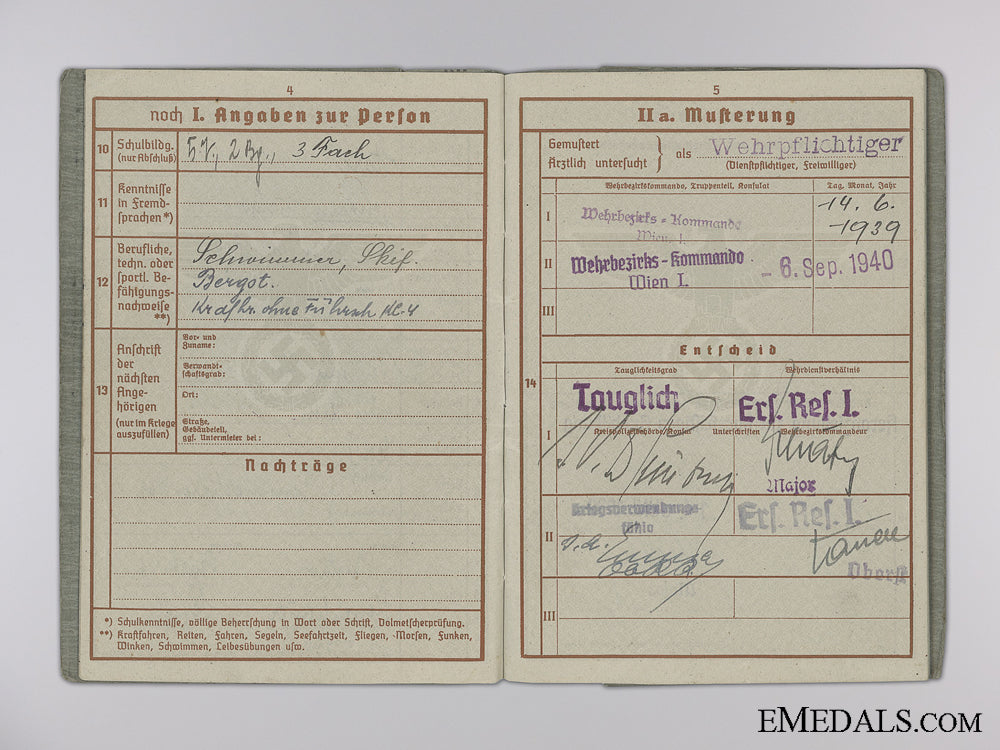 4
noch I. Angaben zur Person
10
Schulbildg.
(nur Abschluß)
5 V., 2 Bg., 3 Fach
11
Kenntnisse
in Fremd-
sprachen *)
12
Berufliche,
techn. oder
sportl. Be-
fähigungs-
nachweise
**)
Schwimmer, Skif.
Bergst.
Kradfhr. ohne Führsch Kl. 4
13
Anschrift
der
nächsten
Ange-
hörigen
(nur im Kriege
auszufüllen)
Vor- und
Zuname:
Verwandt-
schaftsgrad:
Ort:
Straße,
Gebäudeteil,
ggf. Untermieter bei:
Nachträge
*) Schulkenntnisse, völlige Beherrschung in Wort oder Schrift, Dolmetscherprüfung.
**) Kraftfahren, Reiten, Fahren, Segeln, Seefahrtzeit, Fliegen, Morsen, Funken,
Winken, Schwimmen, Leibesübungen usw.
5
II a. Musterung
Gemustert
Ärztlich untersucht
als Wehrpflichtiger
(Dienstpflichtiger, Freiwilliger)
Wehrbezirkskommando, Truppenteil, Konsulat
Tag, Monat, Jahr
I
Wehrbezirks-Kommando
Wien I.
14. 6.
1939
II
Wehrbezirks-Kommando
Wien I.
- 6. Sep. 1940
III
Entscheid
14
Tauglichkeitsgrad
Wehrdienstverhältnis
Tauglich
Ers. Res. I.
I
Kreispolizeibehörde/Konsul
Unterschriften
Wehrbezirkskommandeur
Major
II
Kriegsverwendungs-
fähig
Ers. Res. I.
Oberst
III
EMEDALS.COM